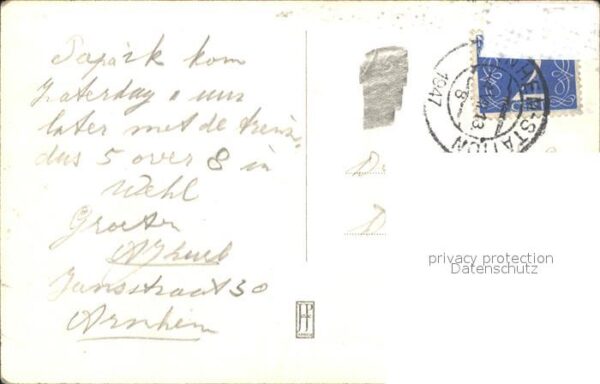 Papa ik kom
Zaterdag 1 uur
later met de trein
dus 5 over 8 in
Wehl
Groeten
Jansstraat 30
Arnhem
ARNHEM-STATION
1947
8
13
D
D
privacy protection
Datenschutz
JP